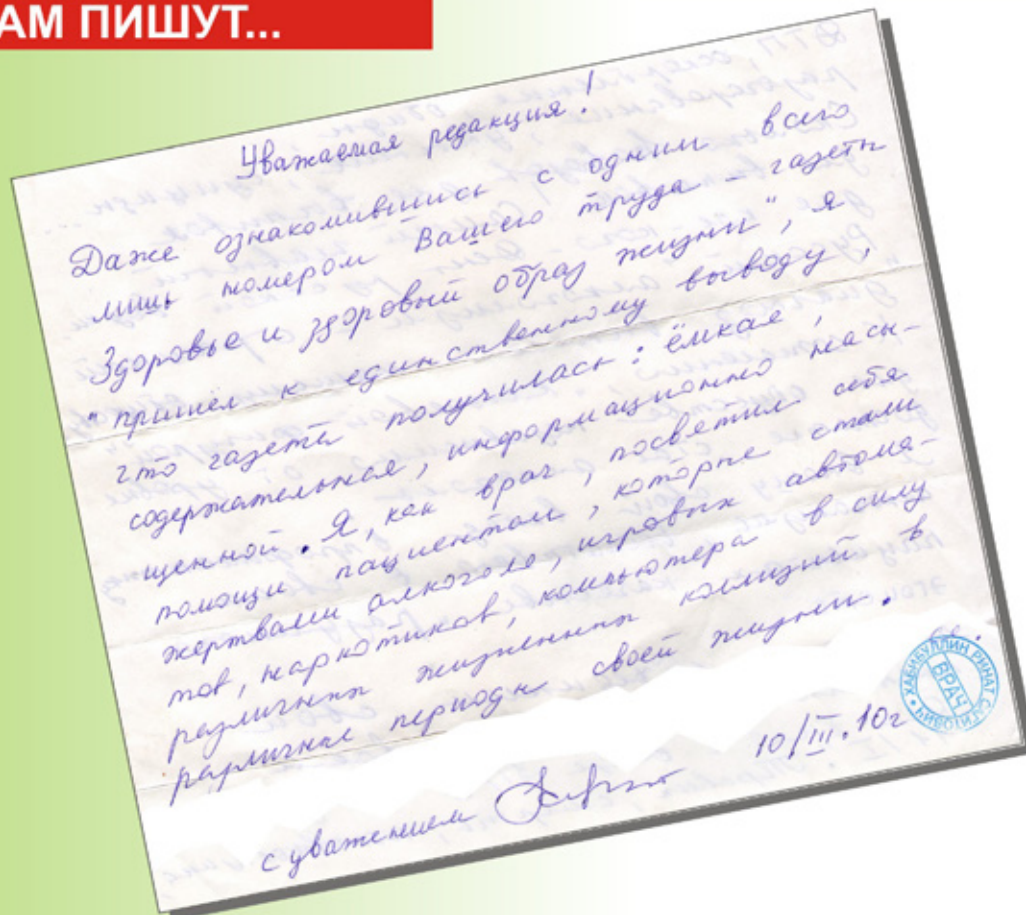 АМ ПИШУТ...
Уважаемая редакция!
Даже ознакомившись с одним всего
лишь номером Вашего труда – газеты
Здоровье и здоровый образ жизни", я
"пришел к единственному выводу,
что газета получилась: ёмкая,
содержательная, информационно насы-
щенной. Я, как врач, посветил себя
помощи пациентам, которые стали
жертвами алкоголя, игровых автома-
тов, наркотиков, компьютера в силу
различных жизненных коллизий в
различные периоды своей жизни.
с уважением
10/III.10г
ХАБИБУЛЛИН РИНАТ
ВРАЧ